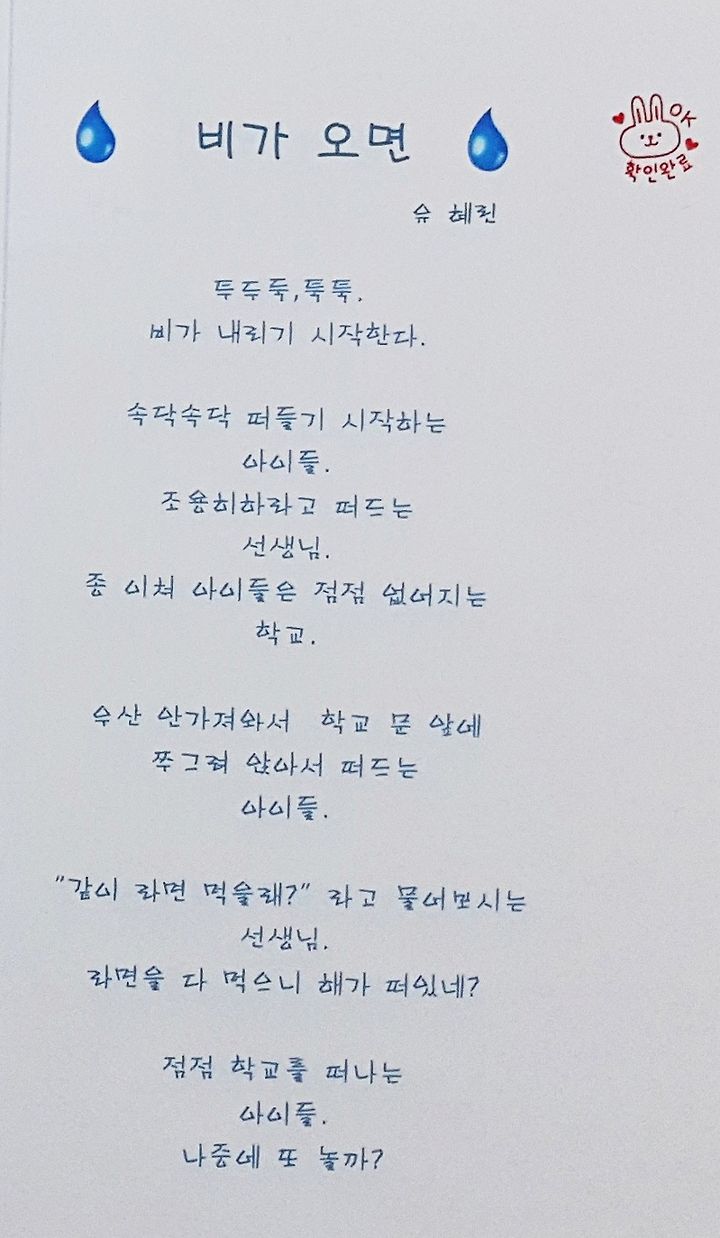 비가 오면
OK
확인완료
슈 혜린
투두둑,툭툭.
비가 내리기 시작한다.
속닥속닥 떠들기 시작하는
아이들.
조용히하라고 떠드는
선생님.
종 이쳐 아이들은 점점 없어지는
학교.
우산 안가져와서 학교 문 앞에
쭈그려 앉아서 떠드는
아이들.
"같이 라면 먹을래?" 라고 물어보시는
선생님.
라면을 다 먹으니 해가 떠있네?
점점 학교를 떠나는
아이들.
나중에 또 놀까?